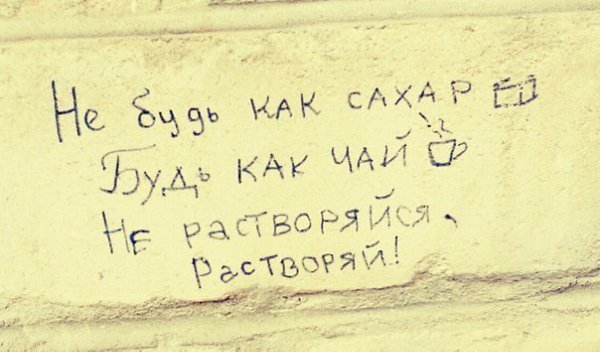 Не будь как сахар
Будь как чай
Не растворяйся,
Растворяй!